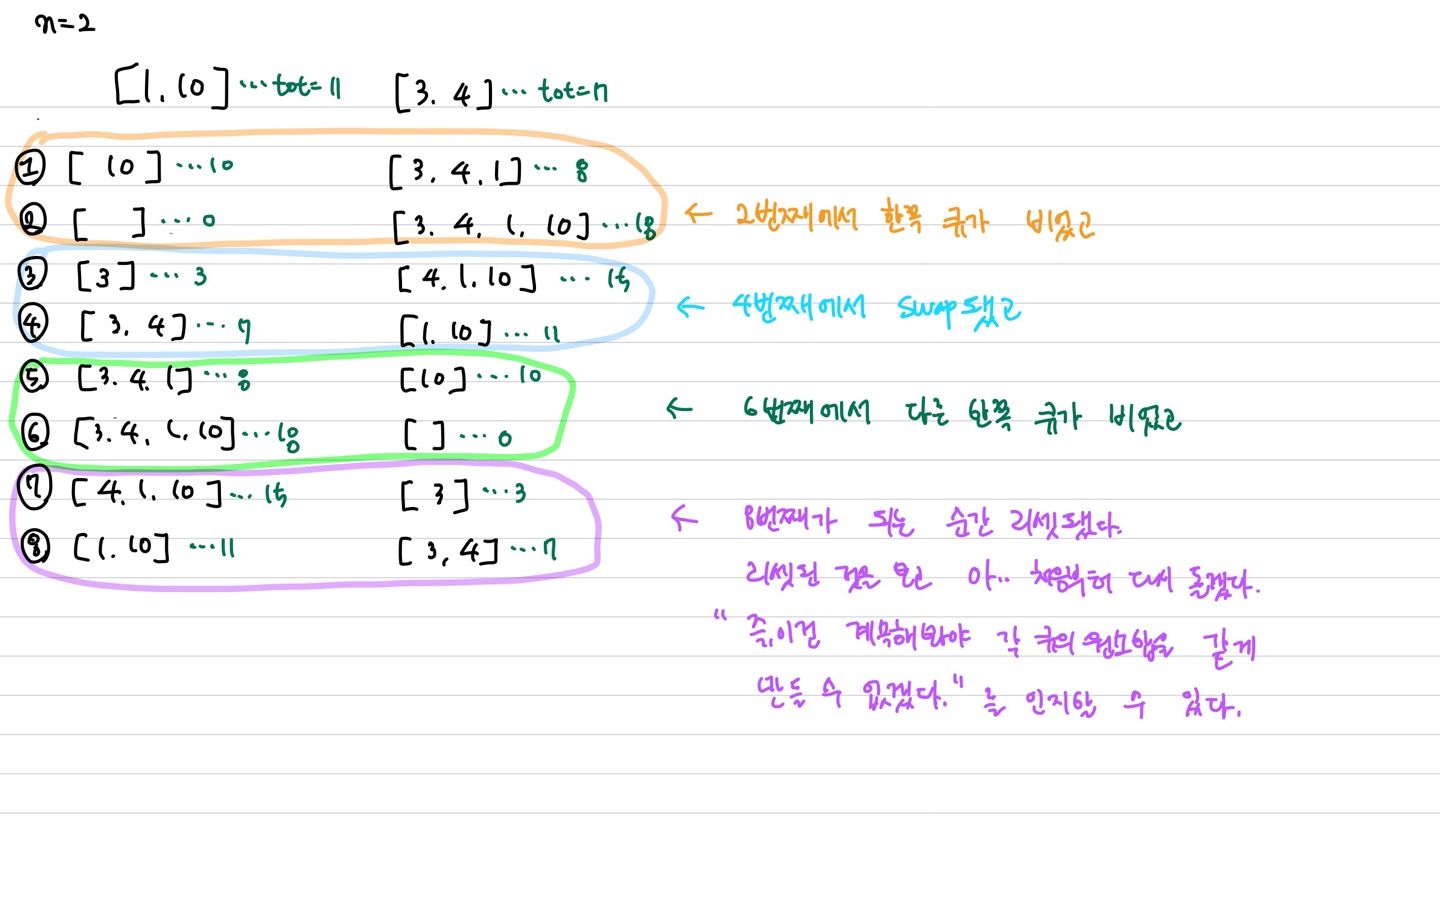 n=2
[1. 10] ... tot=11 [3. 4] ... tot=7
① [ 10 ] ... 10 [3. 4. 1] ... 8
② [ ] ... 0 [3. 4. 1. 10] ... 18
← 2번째에서 한쪽 큐가 비었고
③ [3] ... 3 [4. 1. 10] ... 15
④ [3. 4] ... 7 [1. 10] ... 11
← 4번째에서 swap됐고
⑤ [3. 4. 1] ... 8 [10] ... 10
⑥ [3. 4. 1. 10] ... 18 [ ] ... 0
← 6번째에서 다른 한쪽 큐가 비었고
⑦ [4. 1. 10] ... 15 [3] ... 3
⑧ [1. 10] ... 11 [3, 4] ... 7
← 8번째가 되는 순간 리셋됐다.
리셋된 것을 보고 아.. 처음부터 다시 돌겠다.
"즉, 이건 계속해봐야 각 큐의 원소합을 같게
만들 수 없겠다."를 인지할 수 있다.